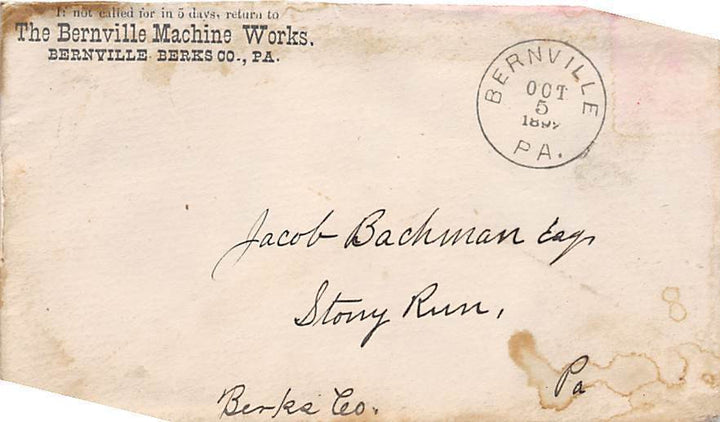 If not called for in 5 days, return to
The Bernville Machine Works.
BERNVILLE BERKS CO., PA.
BERNVILLE
OCT
5
PA.
Jacob Bachman Esq
Stony Run,
Berks Co.
Pa
8